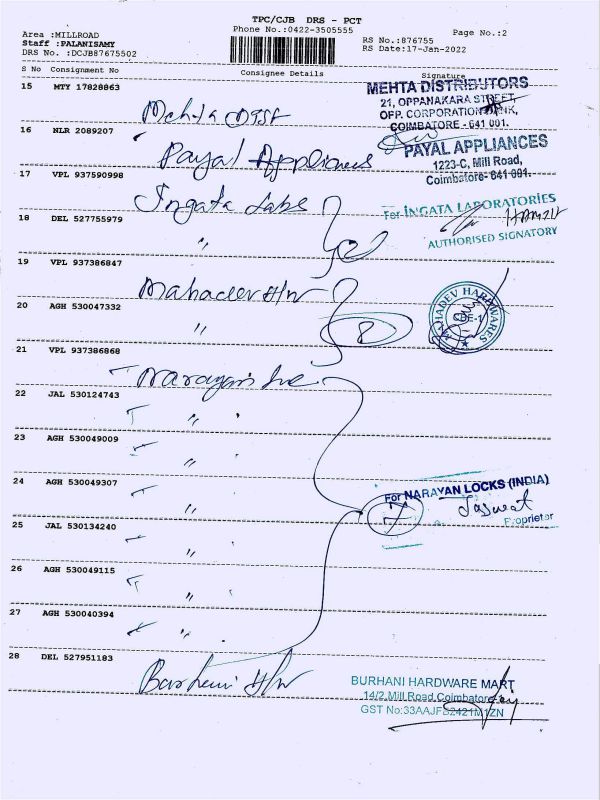 TPC/CJB DRS - PCT
Area :MILLROAD
Phone No.:0422-3505555
Page No.:2
Staff :PALANISAMY
RS No.:876755
DRS No. :DCJB87675502
RS Date:17-Jan-2022
S No Consignment No Consignee Details Signature
15 MTY 17828863
Mehta Dist
MEHTA DISTRIBUTORS
21, OPPANAKARA STREET,
OPP. CORPORATION BANK,
COIMBATORE - 641 001.
16 NLR 2089207
Payal Appliances
PAYAL APPLIANCES
1223-C, Mill Road,
Coimbatore- 641 001.
17 VPL 937590998
Ingata Labs
For INGATA LABORATORIES
AUTHORISED SIGNATORY
18 DEL 527755979
"
19 VPL 937386847
Mahadev H/W
MAHADEV HARDWARES
CBE-1
20 AGH 530047332
"
2
21 VPL 937386868
Narayan
22 JAL 530124743
"
23 AGH 530049009
"
24 AGH 530049307
"
For NARAYAN LOCKS (INDIA)
7
Jaswat
Proprietor
25 JAL 530134240
"
26 AGH 530049115
"
27 AGH 530040394
"
28 DEL 527951183
Barhani H/W
BURHANI HARDWARE MART
14/2, Mill Road, Coimbatore-1
GST No:33AAJFB2421M1ZN